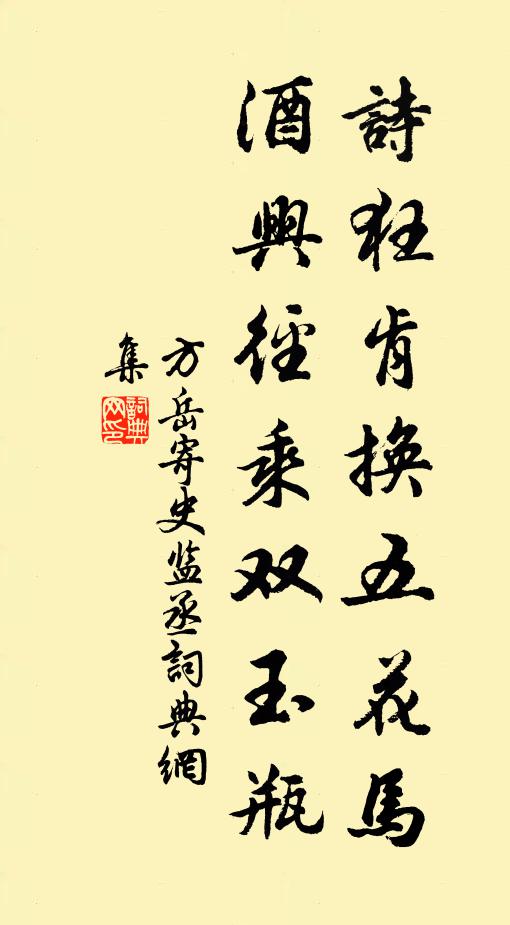 詩狂肯換五花馬
酒興徑乘双玉瓶
方岳寄史监丞詞典網
集
詞典網印